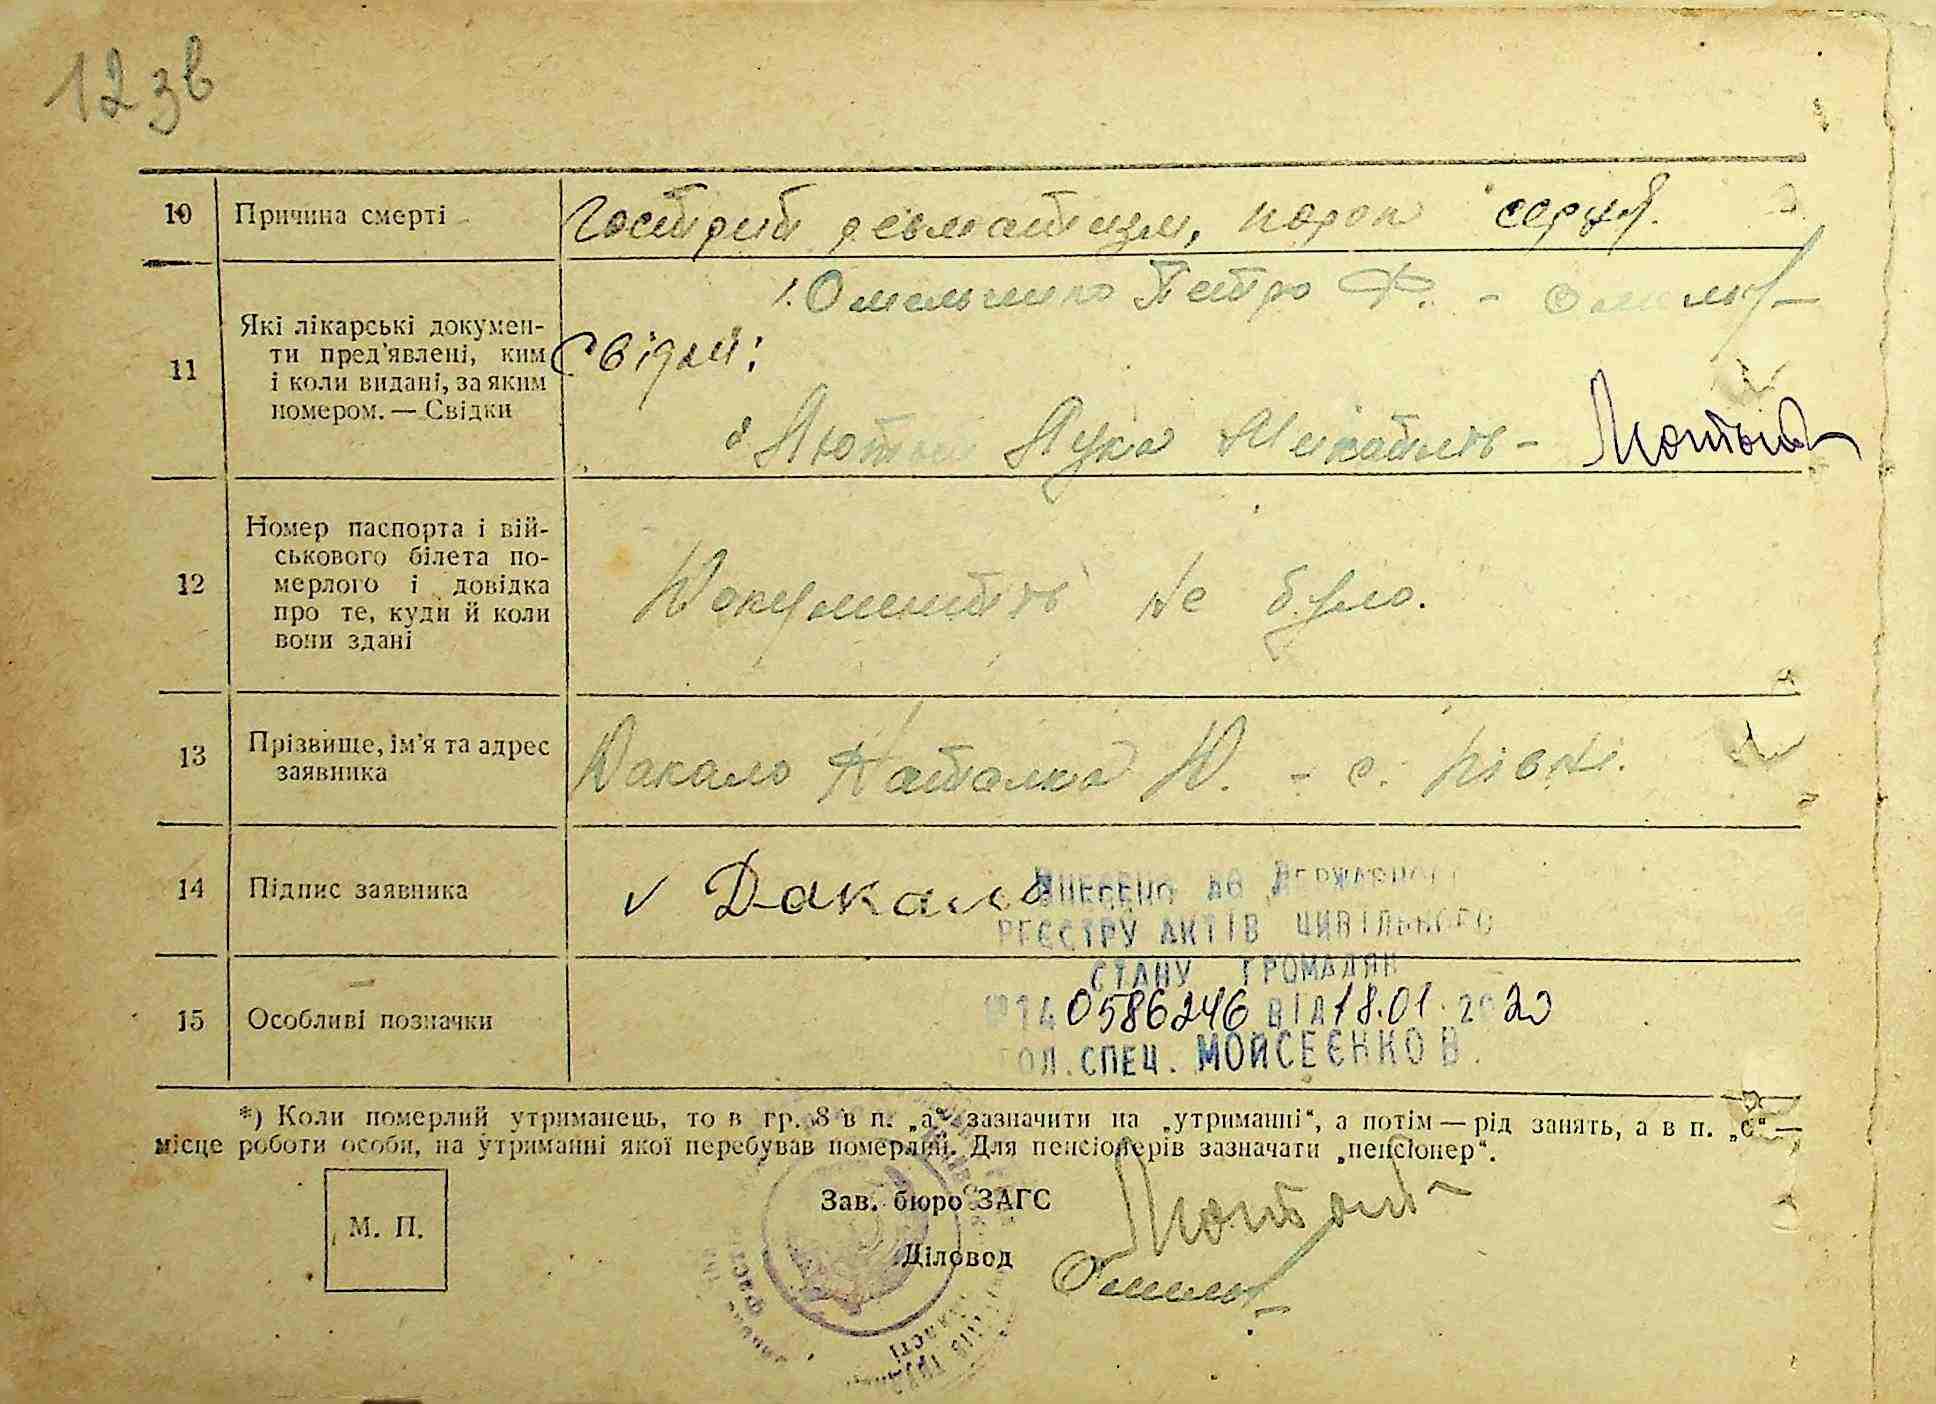 12 зв
10 Причина смерті Гострий ревматизм, порок серця.
11 Які лікарські документи пред'явлені, ким і коли видані, за яким номером. — Свідки
1. Омельченко Петро Ф. -
Свідки:
Лютий Лука Михайлов -
12 Номер паспорта і вій-
ськового білета по-
мерлого і довідка
про те, куди й коли
вони здані
Документів не було.
13 Прізвище, ім'я та адрес
заявника
Дакало Наталка Ю. - с. Рівні.
14 Підпис заявника
v Дакало
ВНЕСЕНО ДО ДЕРЖАВНОГО
РЕЄСТРУ АКТІВ ЦИВІЛЬНОГО
СТАНУ ГРОМАДЯН
15 Особливі позначки
№140586246 ВІД 18.01.2020
ГОЛ. СПЕЦ. МОЙСЕЄНКО В.
*) Коли померлий утриманець, то в гр. 8 в п. „а“ зазначити на „утриманні“, а потім — рід занять, а в п. „с“ —
місце роботи особи, на утриманні якої перебував померлий. Для пенсіонерів зазначати „пенсіонер“.
Зав. бюро ЗАГС
М. П.
Діловод